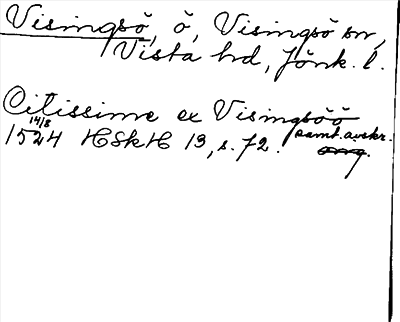 Visingsö, ö, Visingsö sn,
Vista hd, Jönk. l.
Citissime ex Visingsöö
14/8 1524 HSkH 13, s. 72. samt. avskr.
orig.